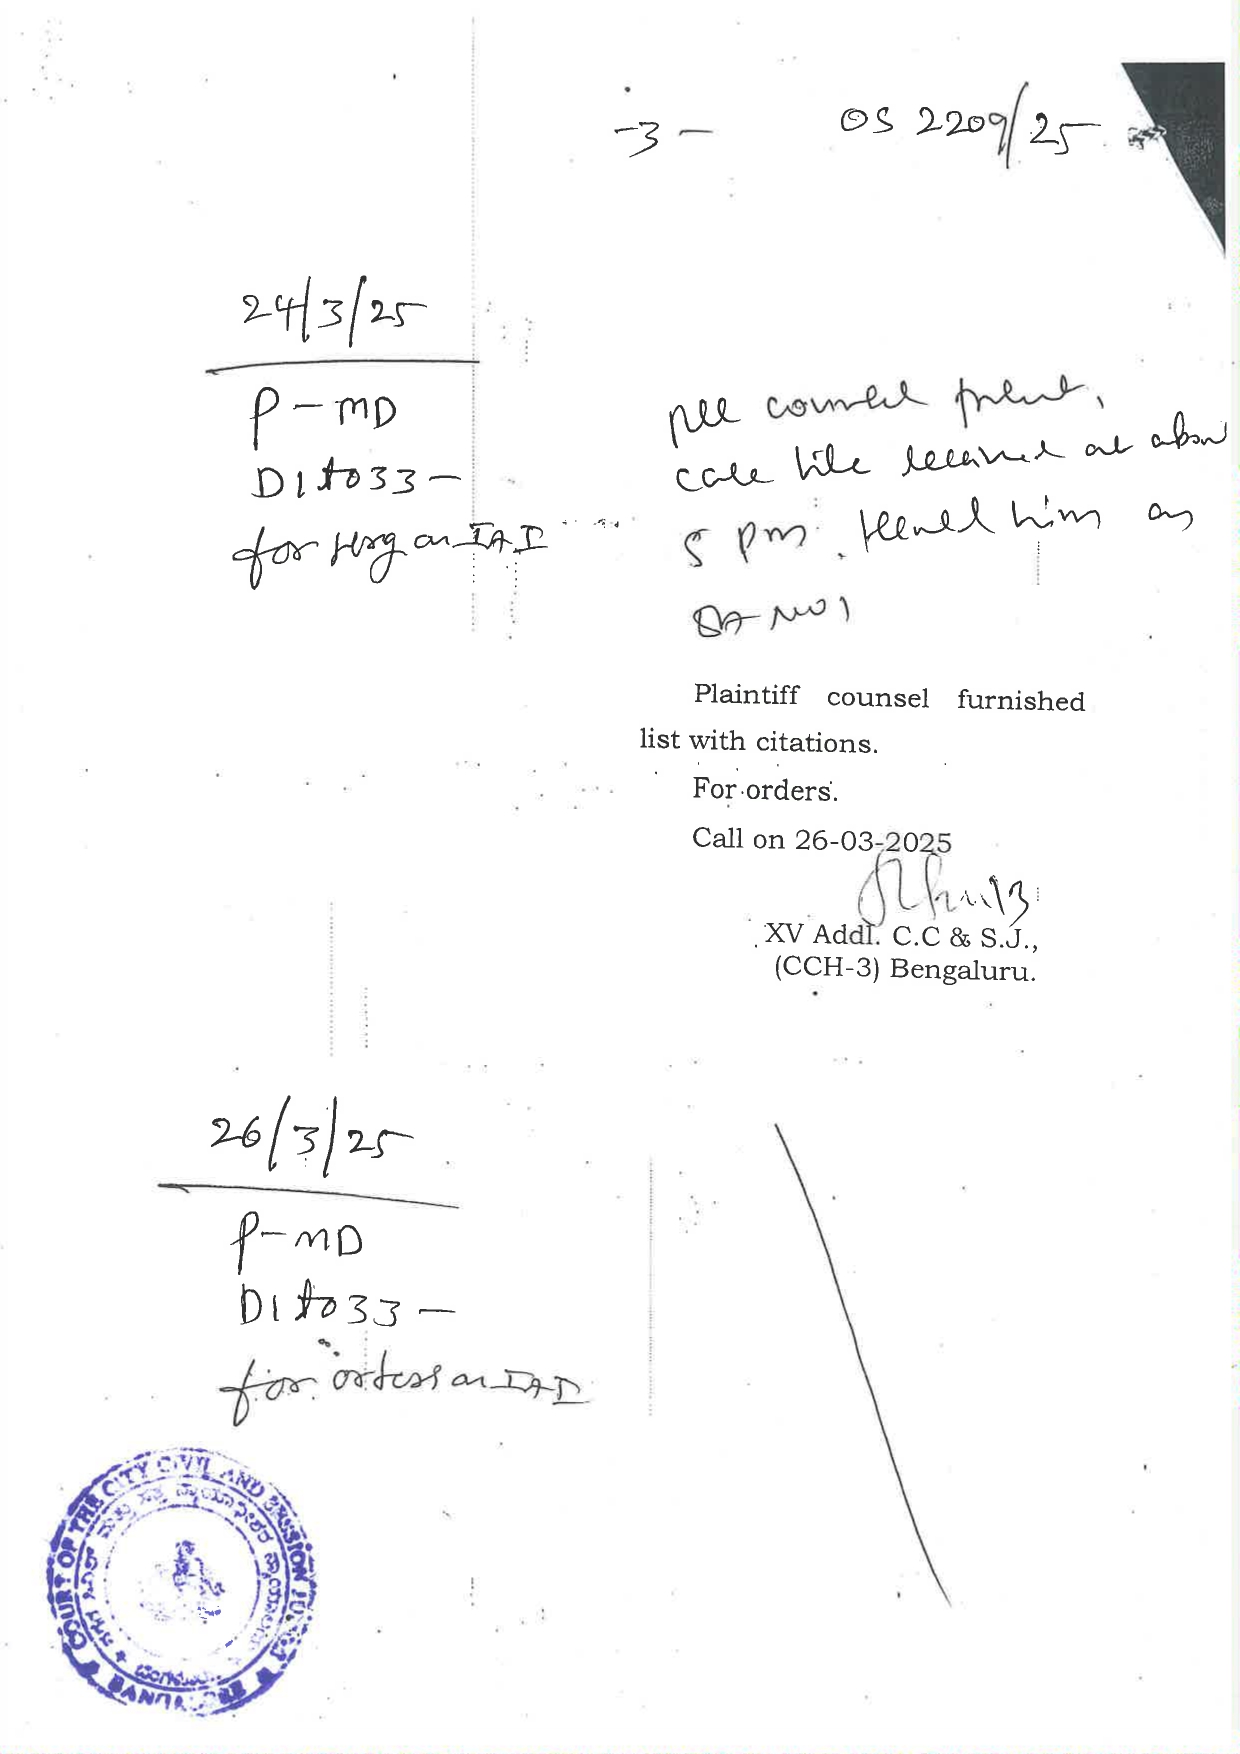 -3-
OS 2209/25
24/3/25
P-MD
D1 to 33 -
for hrg on IA I
Pll counsel present,
case file received at about
5 pm. Heard him on
IA NO1
Plaintiff counsel furnished
list with citations.
For orders.
Call on 26-03-2025
XV Addl. C.C & S.J.,
(CCH-3) Bengaluru.
26/3/25
P-MD
D1 to 33 -
for orders on IA I
COURT OF THE CITY CIVIL AND SESSION